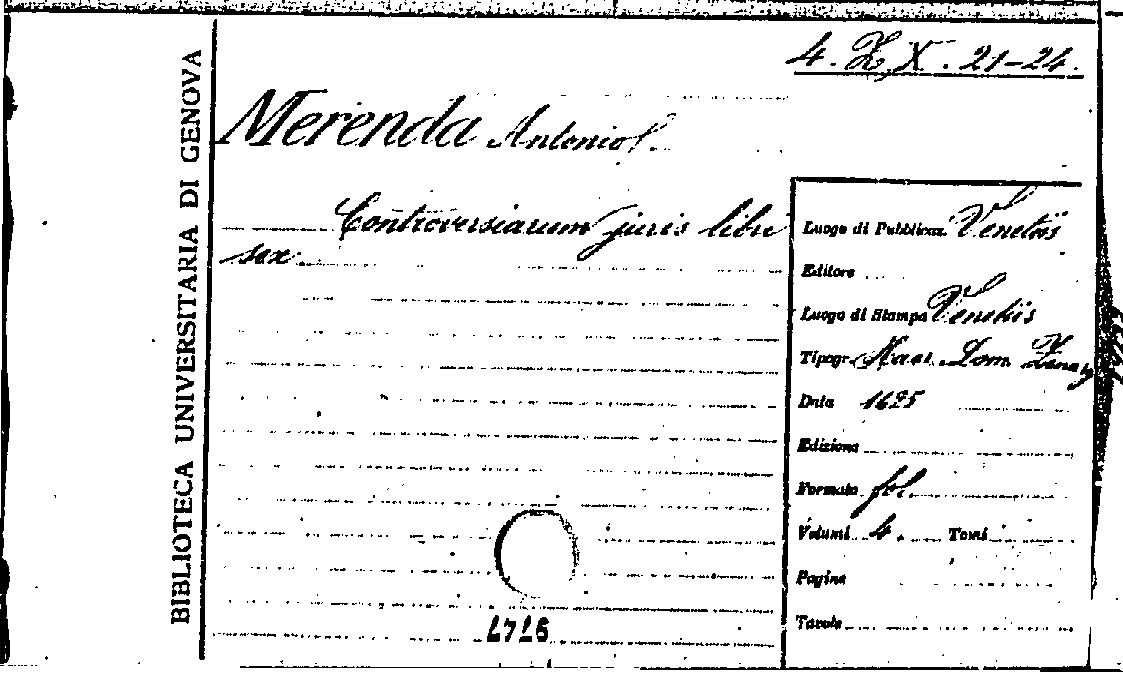 4. Z, X. 21-24.
BIBLIOTECA UNIVERSITARIA DI GENOVA
Merenda Antonio
Controversiarum juris libri
sex
Luogo di Pubblicaz. Venetiis
Editore
Luogo di Stampa Venetiis
Tipogr. Dom.
Data 1625
Edizione
Formato fol.
Volumi 4. Tomi
Pagine
Tavole